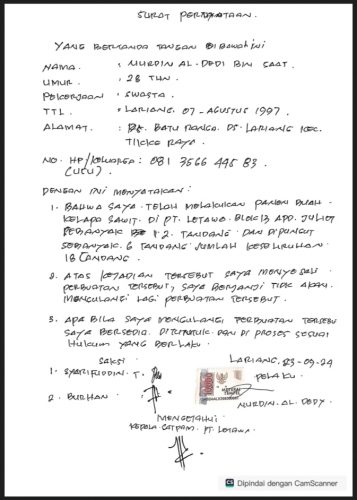 SURAT PERNYATAAN.
YANG BERTANDA TANGAN DIBAWAH INI
NAMA. : NURDIN AL-DEDI BIN SAAT.
UMUR. : 28 THN.
PEKERJAAN : SWASTA.
TTL. : LARIANG, 07-AGUSTUS 1997.
ALAMAT. : BATU RANGA. DS. LARIANG KEC.
TIKKE RAYA.
NO. HP/KELUARGA : 081 3566 495 83.
DENGAN INI MENYATAKAN:
1. BAHWA SAYA TELAH MELAKUKAN PANEN BUAH
KELAPA SAWIT. DI PT. LETAWA. BLOK 13 APD. JULIET
SEBANYAK 12 TANDANG DAN DIPUNGUT
SEBANYAK 6 TANDANG JUMLAH KESELURUHAN
18 (TANDANG.
2. ATAS KEJADIAN TERSEBUT SAYA MENYESALI
PERBUATAN TERSEBUT, SAYA BERJANJI TIDK AKAN
MENGULANGI LAGI PERBUATAN TERSEBUT.
3. APA BILA SAYA MENGULANGI PERBUATAN TERSEBU
SAYA BERSEDIA. DITUNTUK DAN DI PROSES SESUAI
HUKUM YANG BERLAKU
SAKSI
LARIANG, 23-09-24
PELAKU.
1. SYARIFUDDIN. T.
2. BURHAN
NURDIN-AL-DEDY.
MENGETAHUI
KEPALA SATPAM. PT. LETAWA.
CS Dipindai dengan CamScanner